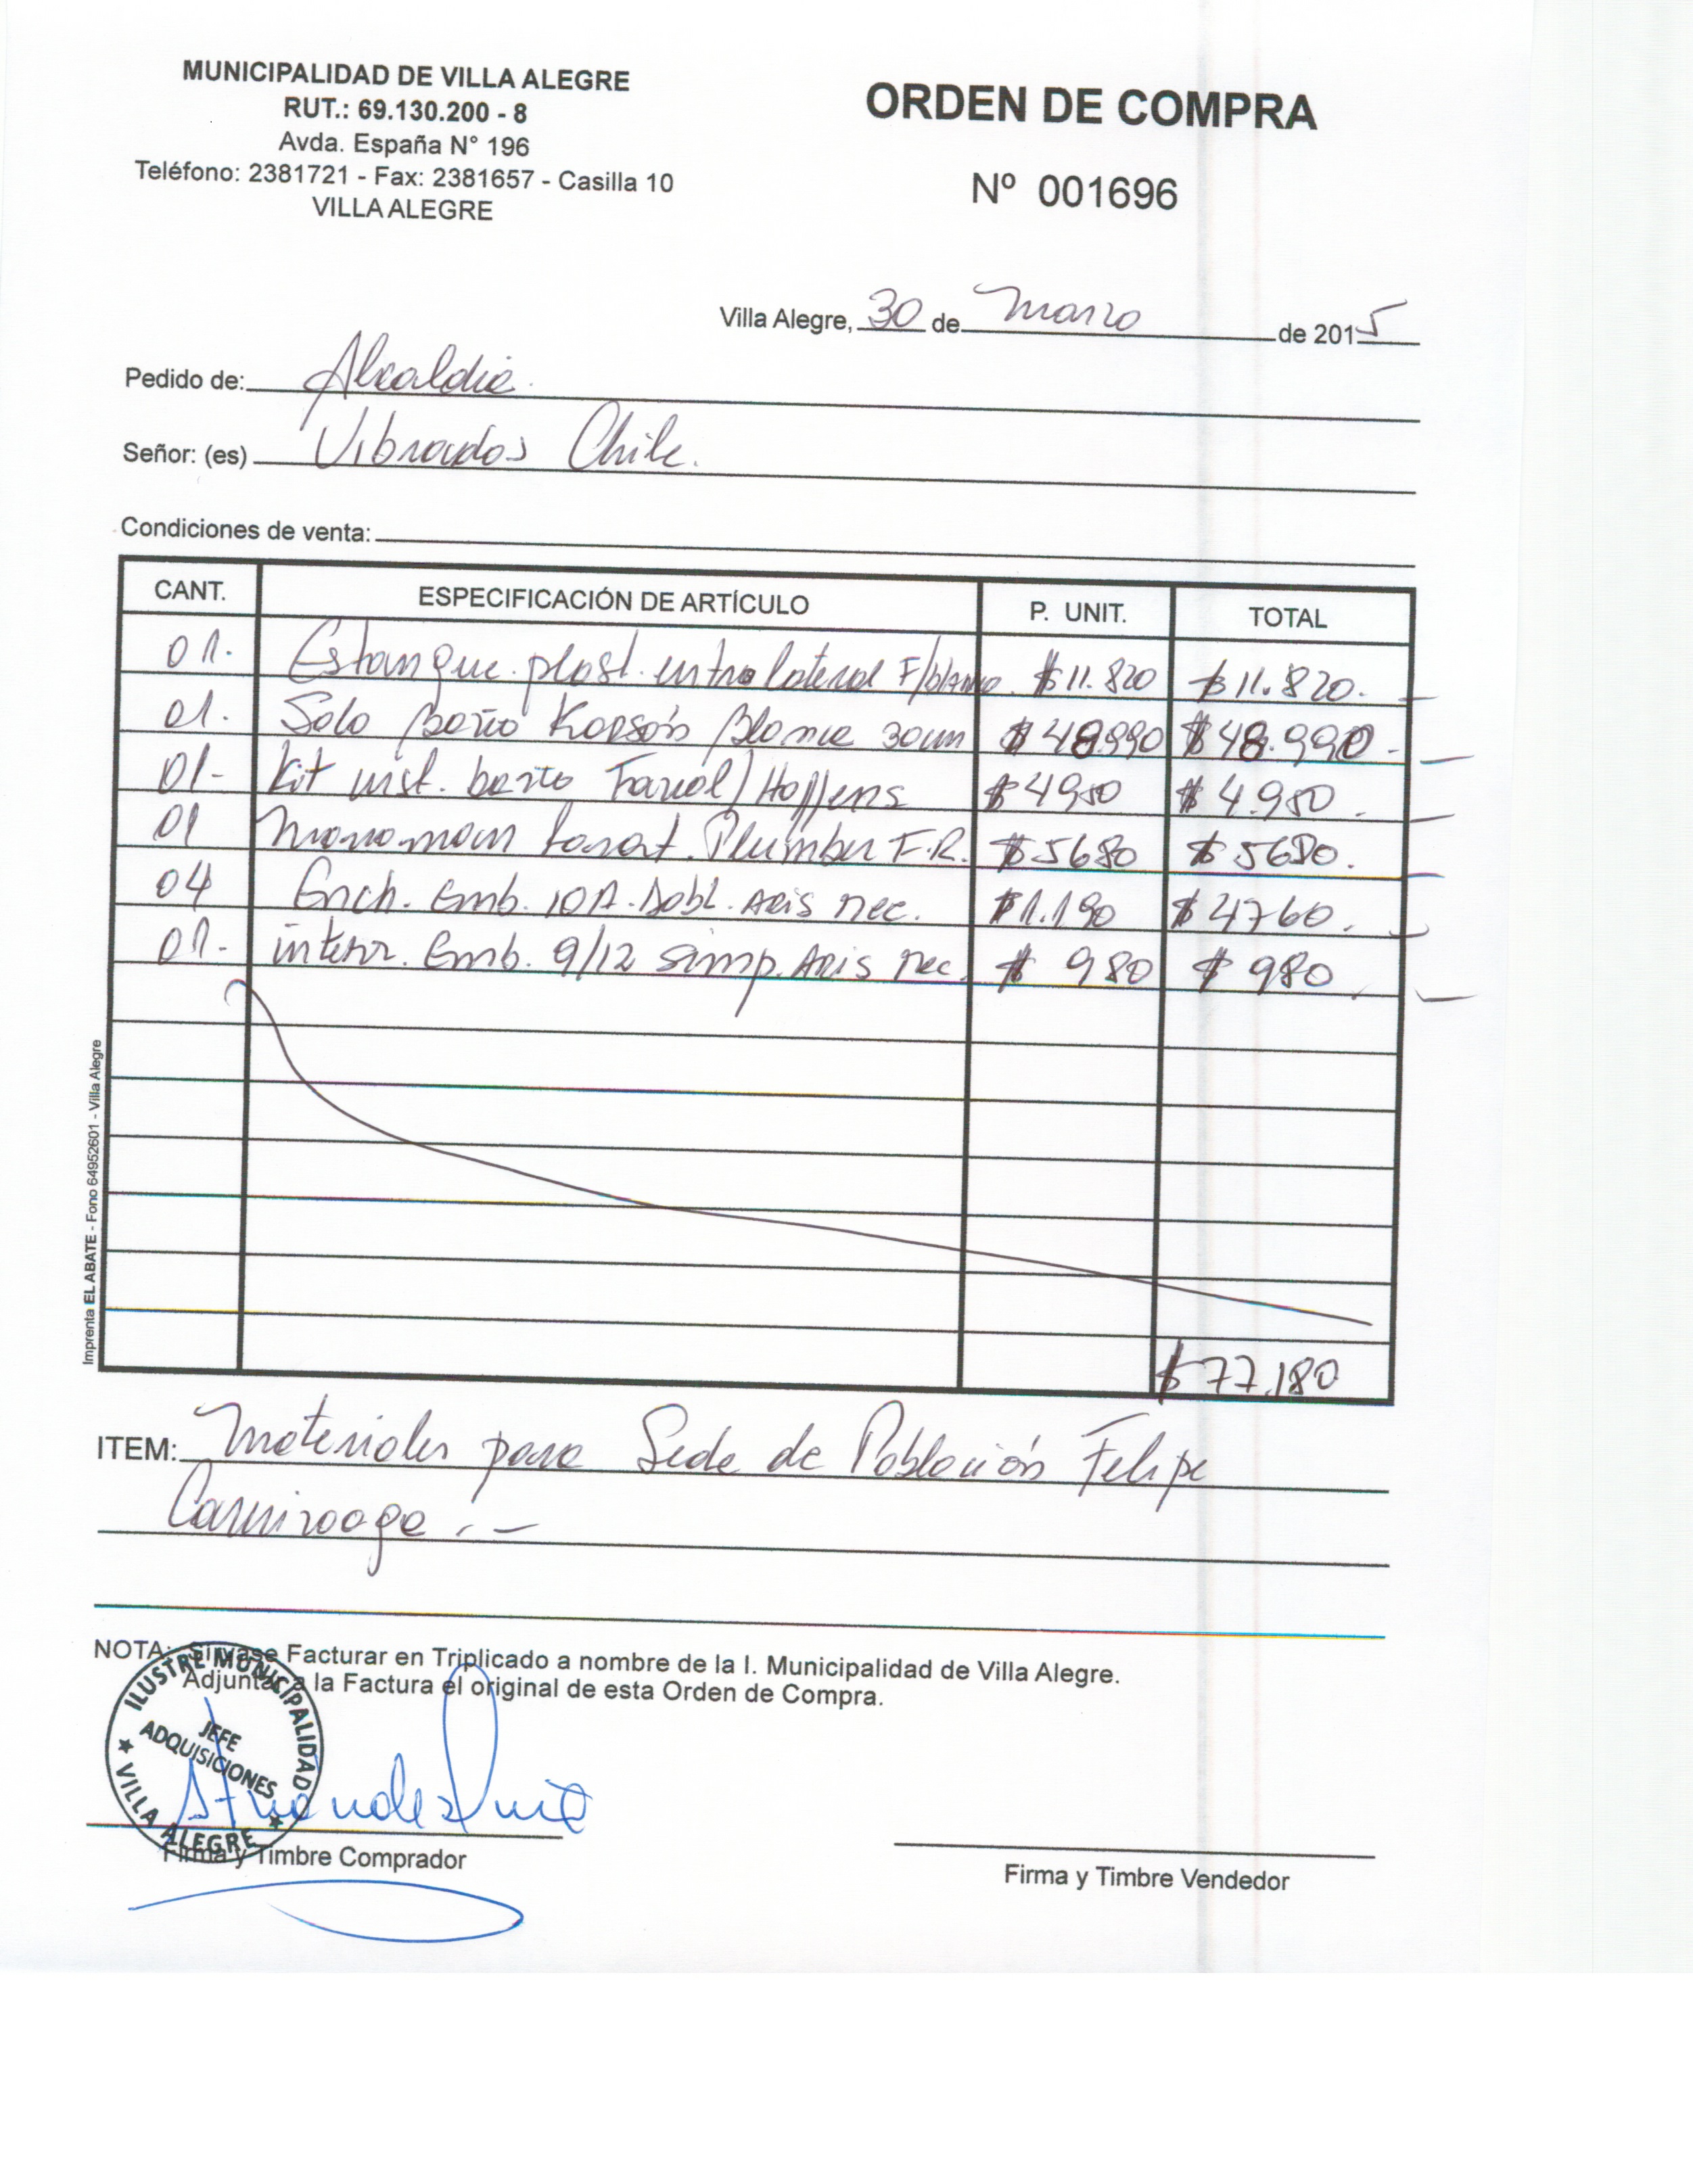 MUNICIPALIDAD DE VILLA ALEGRE
RUT.: 69.130.200 - 8
Avda. España N° 196
Teléfono: 2381721 - Fax: 2381657 - Casilla 10
VILLA ALEGRE
ORDEN DE COMPRA
Nº 001696
Villa Alegre, 30 de Marzo de 2015
Pedido de: Alcaldia.
Señor: (es) Vibrados Chile.
Condiciones de venta:
CANT. ESPECIFICACIÓN DE ARTÍCULO P. UNIT. TOTAL
01. Estanque plast. entra lateral F/blanco. $11.820 $11.820.
01. Solo Baño Blanca 30cm $48.990 $48.990
01- Kit inst. baño Hoffens $4980 $4.980.
01 Monoman Plumber F.R. $5680 $5680.
04 Ench. Emb. 10A. Dobl. Aris Mec. $1.190 $4760.
01- interr. Emb. 9/12 simp. Aris Mec. $ 980 $ 980
$ 77.180
Imprenta EL ABATE - Fono 64952601 - Villa Alegre
ITEM: Materiales para Sede de Población Felipe
Camiroaga.-
NOTA: Sírvase Facturar en Triplicado a nombre de la I. Municipalidad de Villa Alegre.
Adjuntar a la Factura el original de esta Orden de Compra.
ILUSTRE MUNICIPALIDAD
JEFE
ADQUISICIONES
VILLA ALEGRE
Firma y Timbre Comprador
Firma y Timbre Vendedor